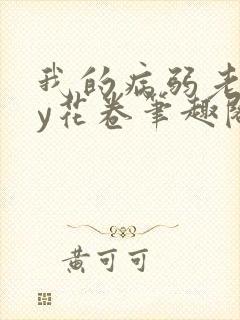 我的病弱老
y花卷笔趣阁
黄可可